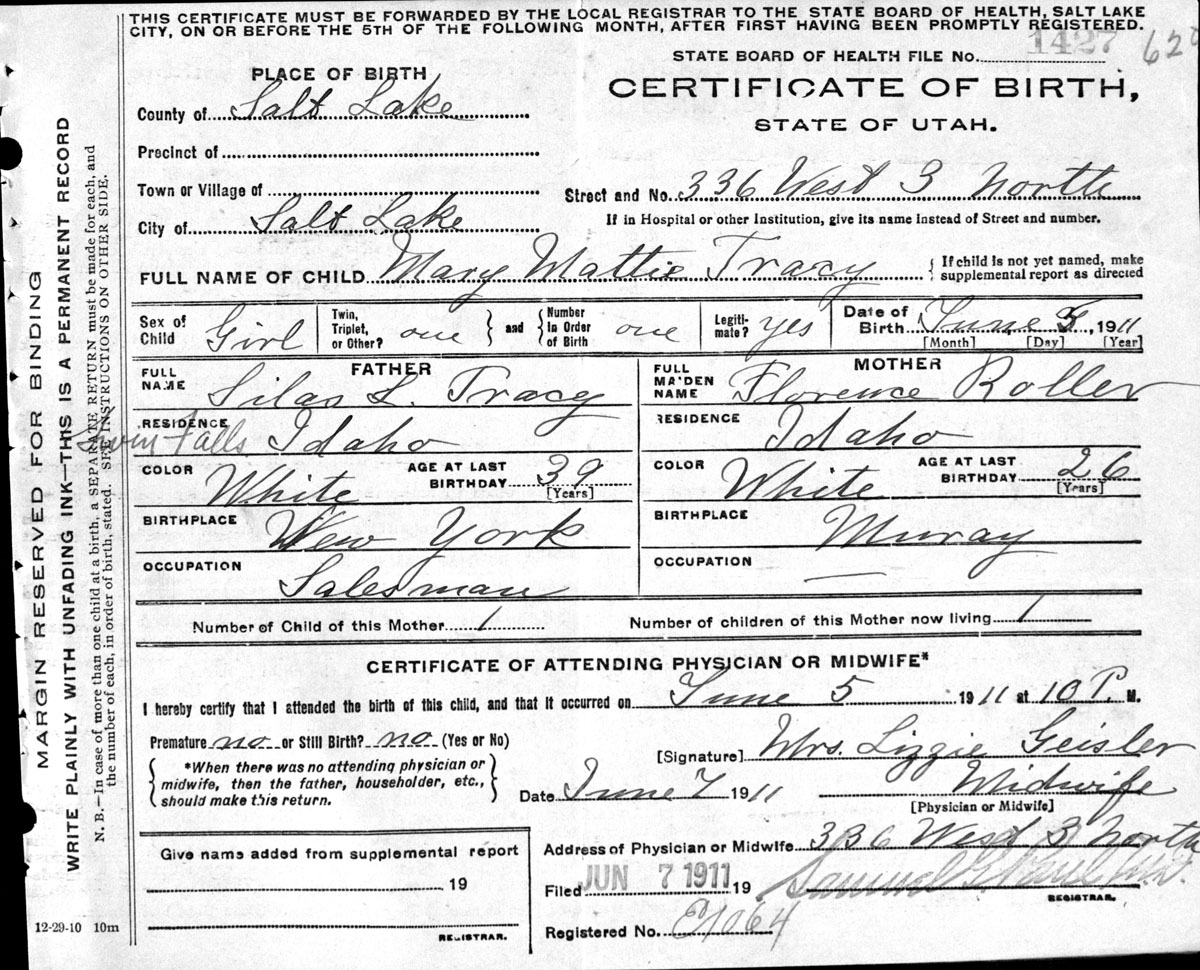 THIS CERTIFICATE MUST BE FORWARDED BY THE LOCAL REGISTRAR TO THE STATE BOARD OF HEALTH, SALT LAKE
CITY, ON OR BEFORE THE 5TH OF THE FOLLOWING MONTH, AFTER FIRST HAVING BEEN PROMPTLY REGISTERED.
STATE BOARD OF HEALTH FILE No. 1427
PLACE OF BIRTH
CERTIFICATE OF BIRTH,
STATE OF UTAH.
County of Salt Lake
Precinct of
Town or Village of
Street and No. 336 West 3 North
City of Salt Lake
If in Hospital or other Institution, give its name instead of Street and number.
FULL NAME OF CHILD Mary Mattie Tracy { If child is not yet named, make
supplemental report as directed
Sex of Child Girl
Twin, Triplet, or Other? one } and { Number In Order of Birth one
Legiti- mate? yes
Date of Birth June 5, 1911
[Month] [Day] [Year]
FATHER
FULL NAME Silas L. Tracy
RESIDENCE
Twin Falls Idaho
COLOR White AGE AT LAST BIRTHDAY 39
[Years]
BIRTHPLACE New York
OCCUPATION Salesman
MOTHER
FULL MAIDEN NAME Florence Roller
RESIDENCE Idaho
COLOR White AGE AT LAST BIRTHDAY 26
[Years]
BIRTHPLACE Murray
OCCUPATION —
Number of Child of this Mother 1 Number of children of this Mother now living 1
CERTIFICATE OF ATTENDING PHYSICIAN OR MIDWIFE*
I hereby certify that I attended the birth of this child, and that it occurred on June 5 1911 at 10 P. M.
Premature no or Still Birth? no (Yes or No)
[Signature] Mrs. Lizzie Geisler
*When there was no attending physician or
midwife, then the father, householder, etc.,
should make this return.
Date June 7 1911 Midwife
[Physician or Midwife]
Address of Physician or Midwife 336 West 3 North
Give name added from supplemental report
19
REGISTRAR.
Filed JUN 7 1911 19
Samuel G.
REGISTRAR.
Registered No. 1064
12-29-10 10m
MARGIN RESERVED FOR BINDING
WRITE PLAINLY WITH UNFADING INK—THIS IS A PERMANENT RECORD
N. B.—In case of more than one child at a birth, a SEPARATE RETURN must be made for each, and
the number of each, in order of birth, stated. SEE INSTRUCTIONS ON OTHER SIDE.